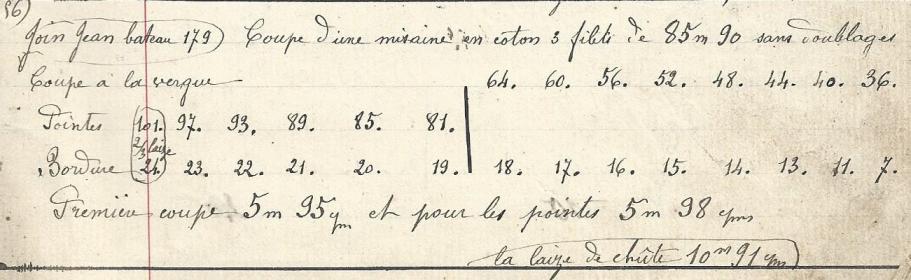 56)
Join Jean bateau 179) Coupe d'une misaine en coton 3 filets de 85m 90 sans doublages
Coupe a la vergue 64. 60. 56. 52. 48. 44. 40. 36.
Pointes 101. 97. 93. 89. 85. 81.
2/3 laize
Bordure 24. 23. 22. 21. 20. 19. 18. 17. 16. 15. 14. 13. 11. 7.
Premiere coupe 5m 95 et pour les pointes 5m 98
la laize de chûte 10m 91